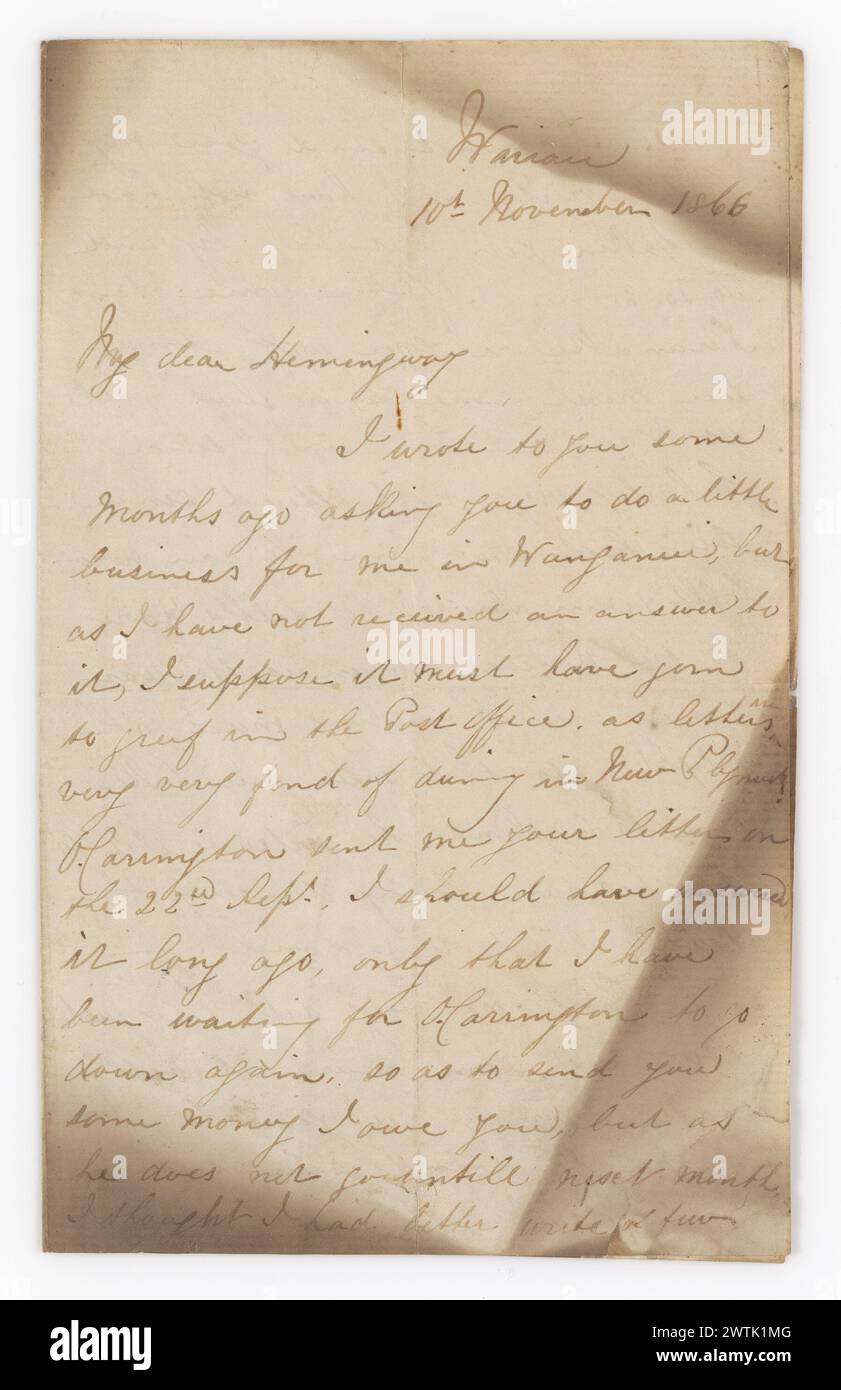 10th November 1866
My dear Hemingway
I wrote to you some
months ago asking you to do a little
business for me in Wanganui, but
as I have not received an answer to
it, I suppose it must have gorn
to greif in the Post office. as letters are
very very fond of doing in New Plymouth
O. Carrington sent me your letter on
the 22nd Sept. I should have
it long ago, only that I have
been waiting for O. Carrington to go
down again, so as to send you
some money I owe you, but as
he does not go untill next month,
I thought I had better write a few
a
alamy
Image ID: 2WTK1MG
www.alamy.com